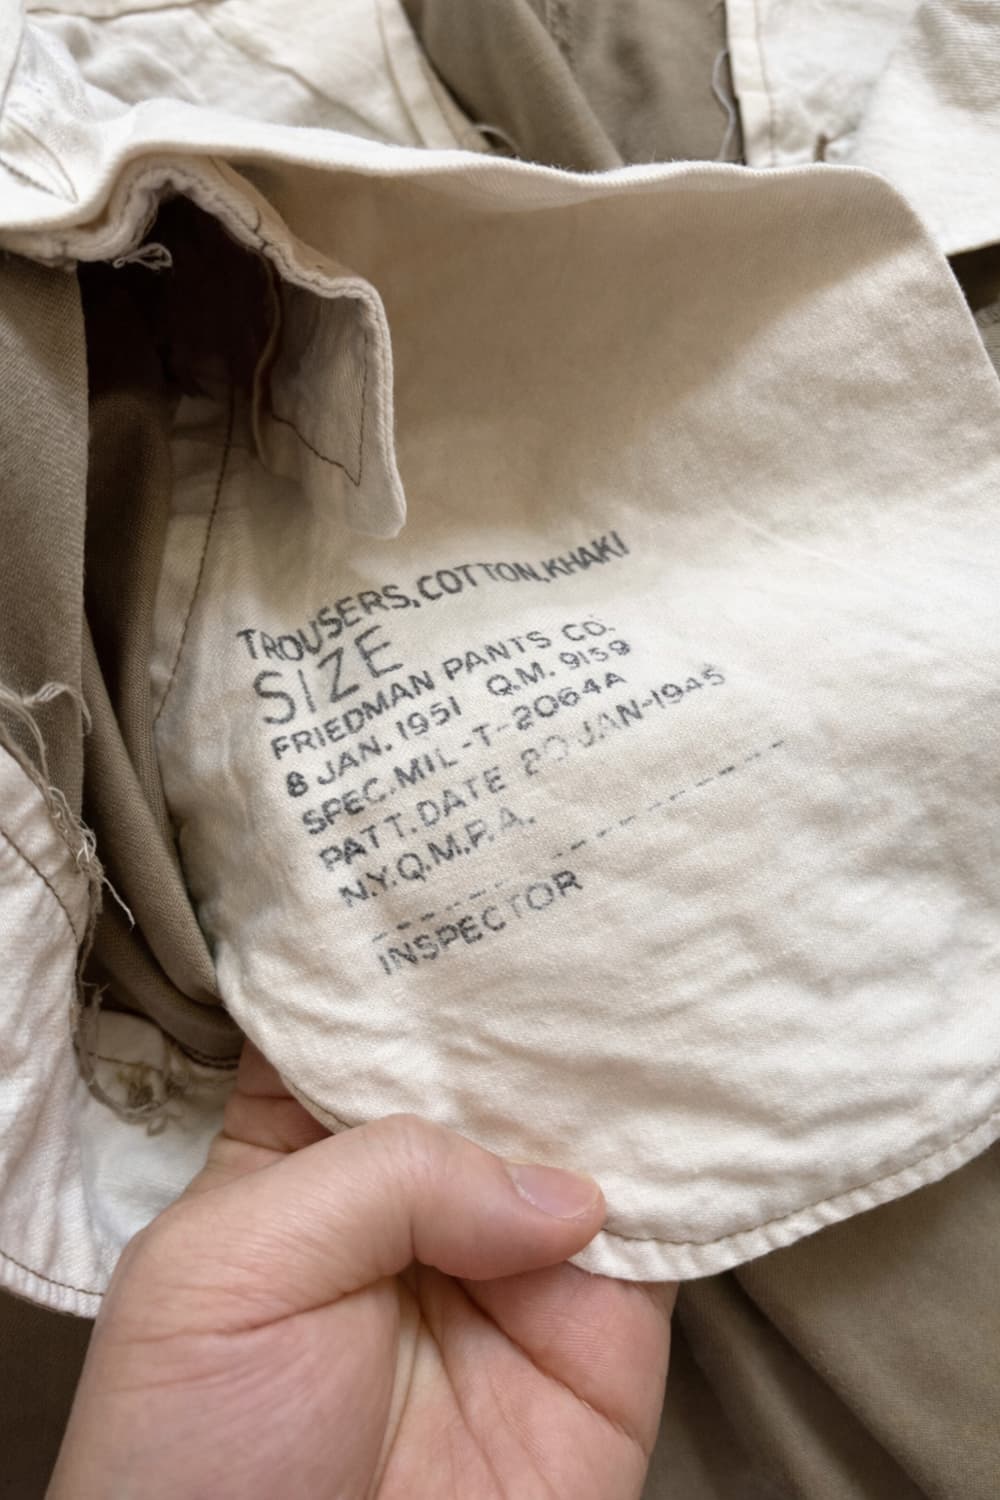 TROUSERS, COTTON, KHAKI
SIZE
FRIEDMAN PANTS CO.
8 JAN. 1951 Q.M. 9159
SPEC. MIL-T-2064A
PATT. DATE 20 JAN-1945
N.Y.Q.M.P.A.
INSPECTOR